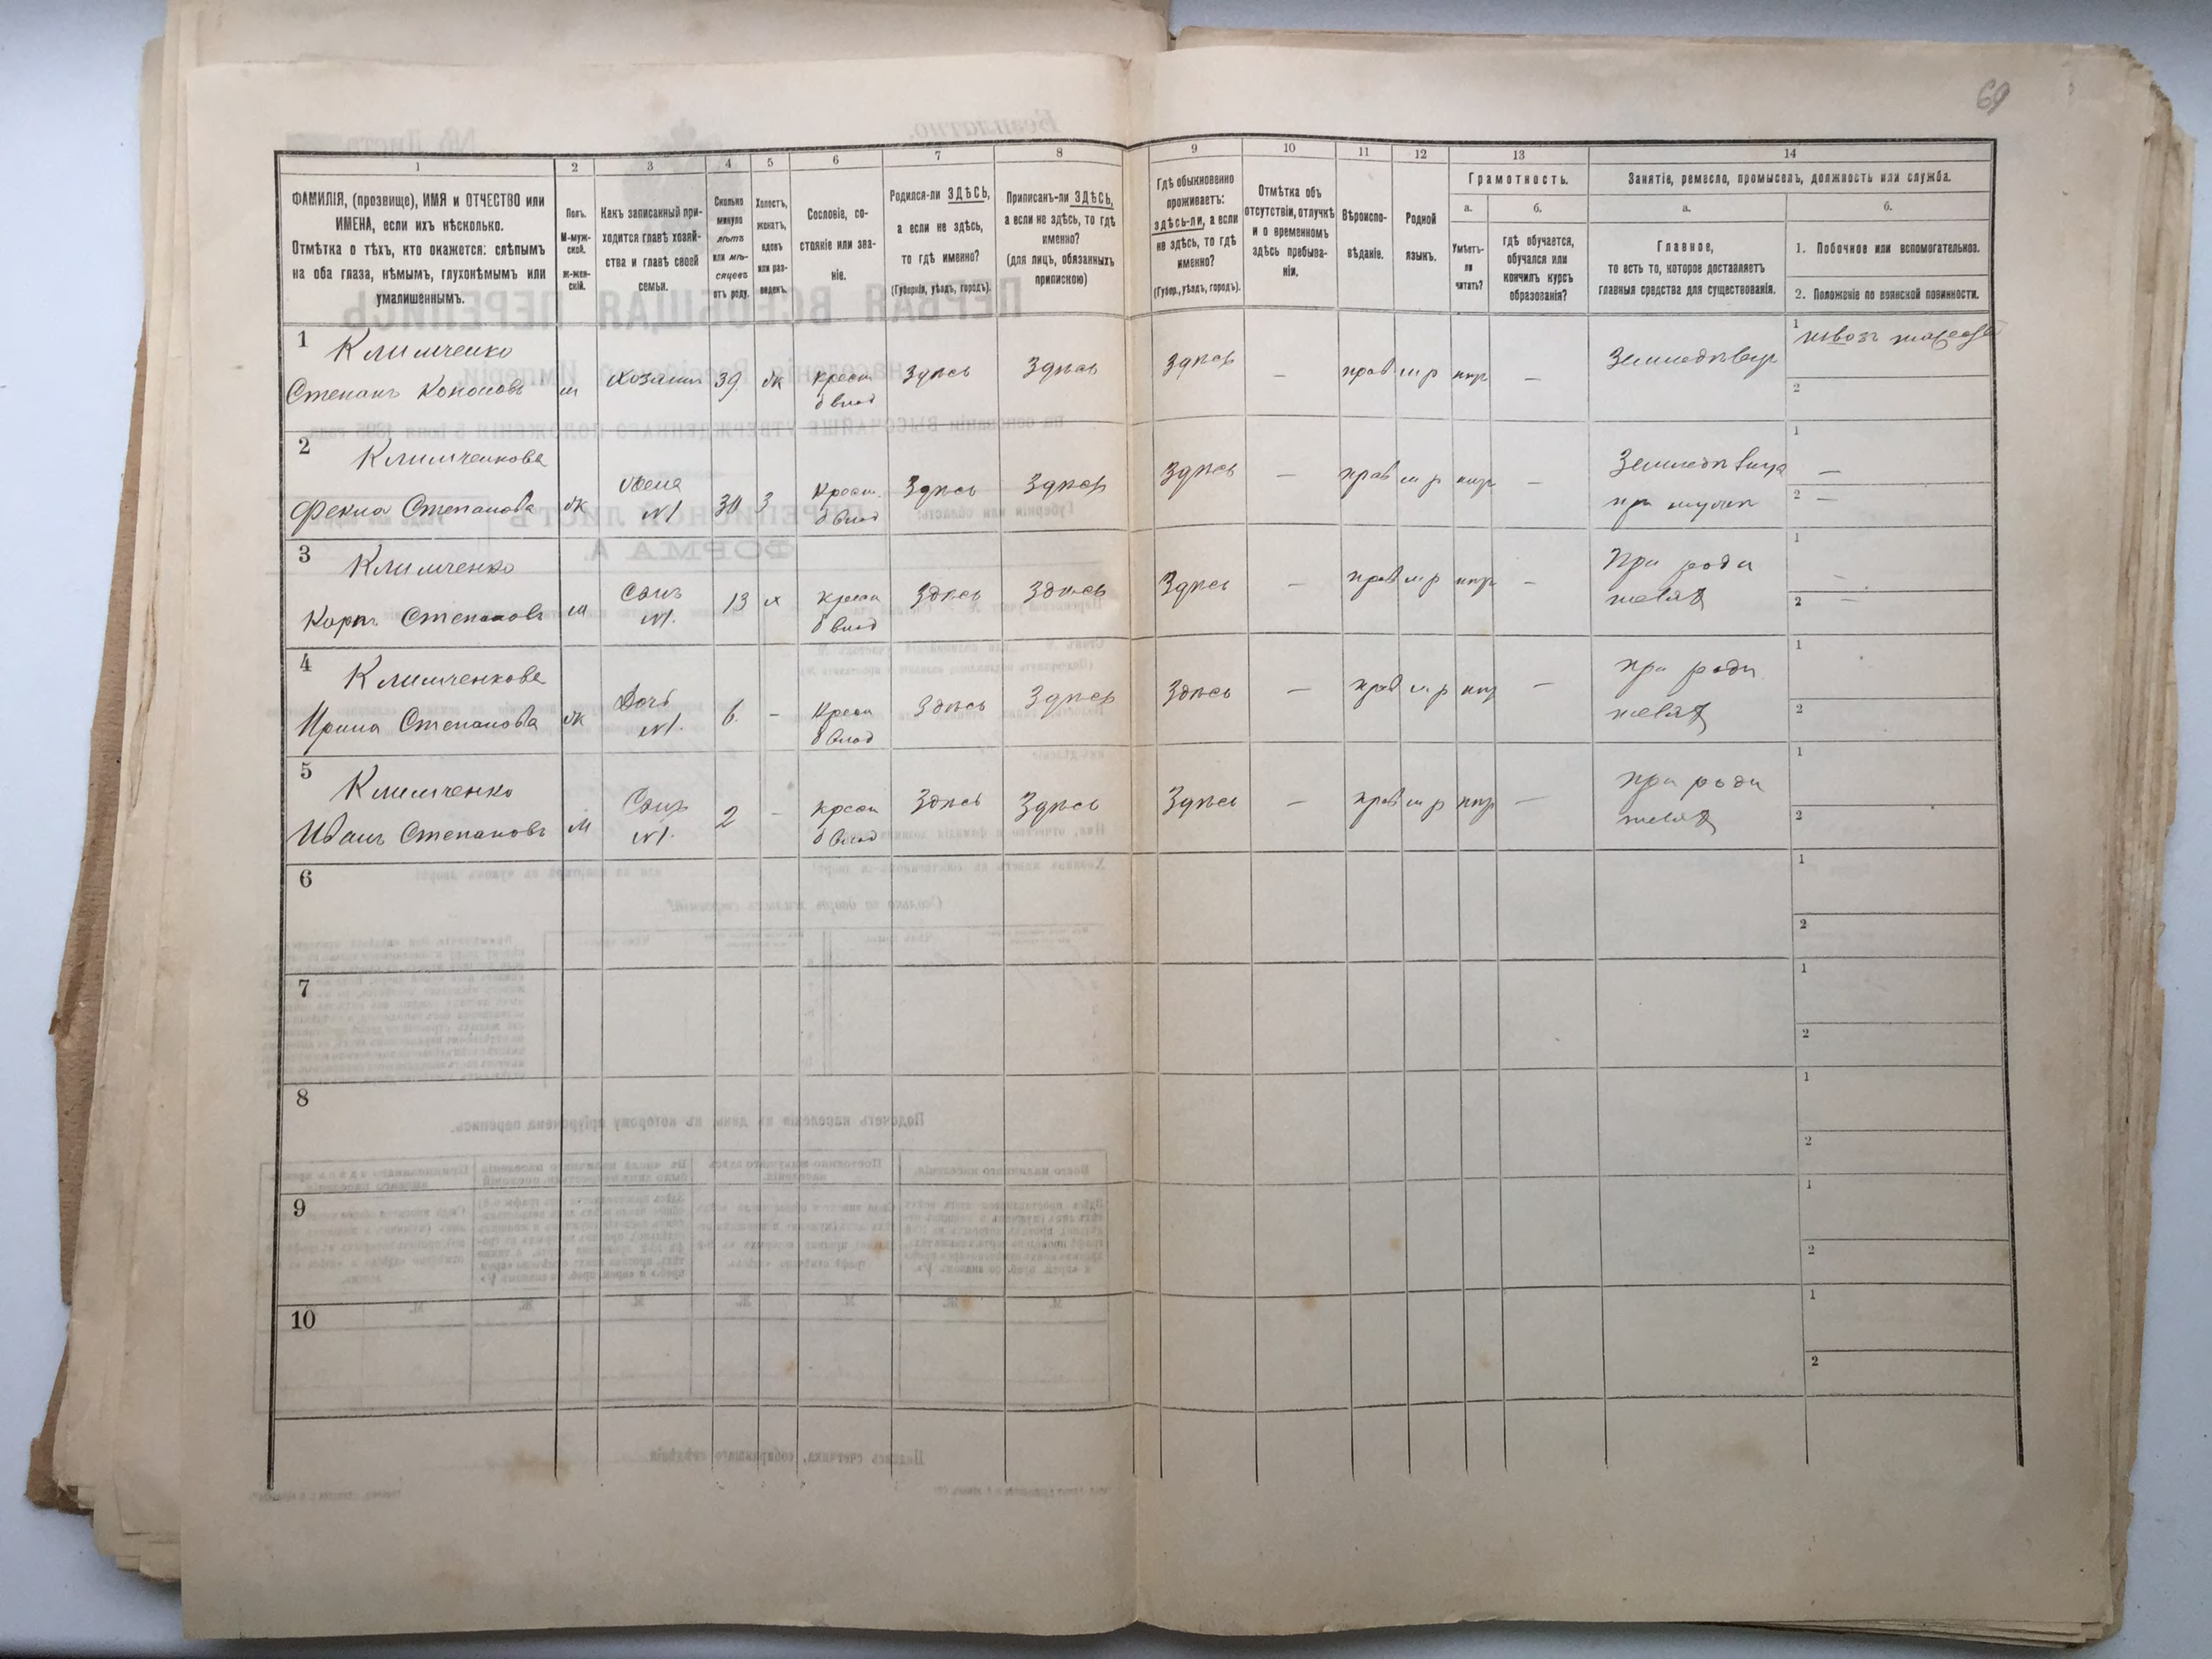 69
1
2
3
4
5
6
7
8
9
10
11
12
13
14
ФАМИЛІЯ, (прозвище), ИМЯ и ОТЧЕСТВО или
ИМЕНА, если ихъ нѣсколько.
Отмѣтка о тѣхъ, кто окажется: слѣпымъ
на оба глаза, нѣмымъ, глухонѣмымъ или
умалишеннымъ.
Полъ.
М-муж-
ской.
ж-жен-
скій.
Какъ записанный при-
ходится главѣ хозяй-
ства и главѣ своей
семьи.
Сколько
минуло
лѣтъ
или мѣ-
сяцевъ
отъ роду.
Холостъ,
женатъ,
вдовъ
или раз-
веденъ.
Сословіе, со-
стояніе или зва-
ніе.
Родился-ли ЗДѢСЬ,
а если не здѣсь,
то гдѣ именно?
(Губернія, уѣздъ, городъ).
Приписанъ-ли ЗДѢСЬ,
а если не здѣсь, то гдѣ
именно?
(для лицъ, обязанныхъ
припискою)
Гдѣ обыкновенно
проживаетъ:
здѣсь-ли, а если
не здѣсь, то гдѣ
именно?
(Губер., уѣздъ, городъ).
Отмѣтка объ
отсутствіи, отлучкѣ
и о временномъ
здѣсь пребыва-
ніи.
Вѣроиспо-
вѣданіе.
Родной
языкъ.
Грамотность.
а.
б.
Умѣетъ-
ли
читать?
гдѣ обучается,
обучался или
кончилъ курсъ
образованія?
Занятіе, ремесло, промыселъ, должность или служба.
а.
б.
Главное,
то есть то, которое доставляетъ
главныя средства для существованія.
1. Побочное или вспомогательное.
2. Положеніе по воинской повинности.
1
Климченко
Степанъ Кононовъ
м
Хозяинъ
39
ж
крест
б влад
Здѣсь
Здѣсь
Здѣсь
—
прав
м р
нѣт
—
Земледѣлецъ
1
2
2
Климченкова
Фекла Степанова
ж
Жена
N1
З
крест.
б влад
Здѣсь
Здѣсь
Здѣсь
—
прав
м р
нѣт
—
Земледѣлица
при мужѣ
1 —
2 —
3
Климченко
Карпъ Степановъ
м
Сынъ
N1.
13
х
крест
б влад
Здѣсь
Здѣсь
Здѣсь
—
прав
м р
нѣт
—
При роди
теляхъ
1 —
2 —
4
Климченкова
Ирина Степанова
ж
Дочь
N1.
6.
–
крест
б влад
Здѣсь
Здѣсь
Здѣсь
—
прав
м р
нѣт
—
при роди
теляхъ
1
2
5
Климченко
Иванъ Степановъ
м
Сынъ
N1.
2
–
крест
б влад
Здѣсь
Здѣсь
Здѣсь
—
прав
м р
нѣт
—
при роди
теляхъ
1
2
6
1
2
7
1
2
8
1
2
9
1
2
10
1
2